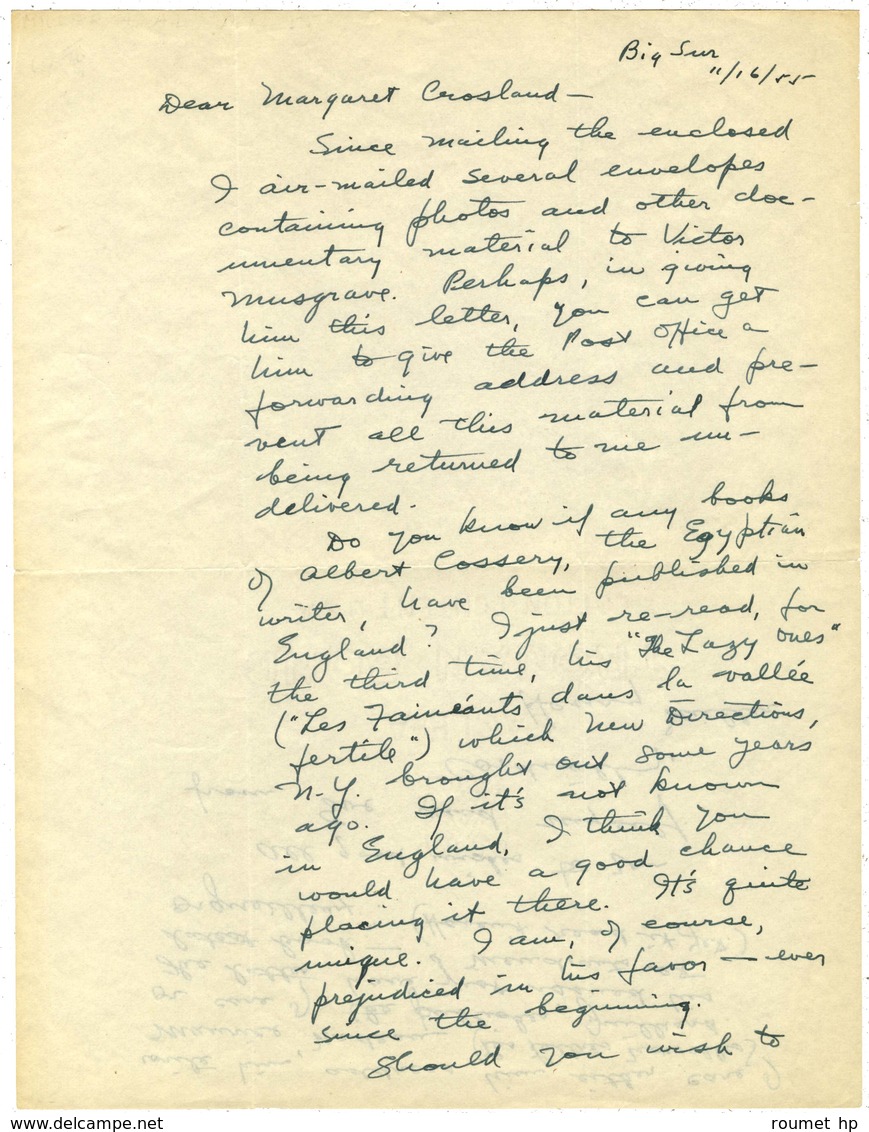 Big Sur
11/16/55
Dear Margaret Crosland —
Since mailing the enclosed
I air-mailed several envelopes
containing photos and other doc-
umentary material to Victor
Musgrave. Perhaps, in giving
him this letter, you can get
him to give the Post Office a
forwarding address and pre-
vent all this material from
being returned to me un-
delivered.
Do you know if any books
of Albert Cossery, the Egyptian
writer, have been published in
England? I just re-read, for
the third time, his "The Lazy Ones"
("Les Fainéants dans la vallée
fertile") which New Directions,
N.Y. brought out some years
ago. If it's not known
in England, I think you
would have a good chance
placing it there. It's quite
unique. I am, of course,
prejudiced in his favor — ever
since the beginning.
Should you wish to
www.delcampe.net
roumet hp